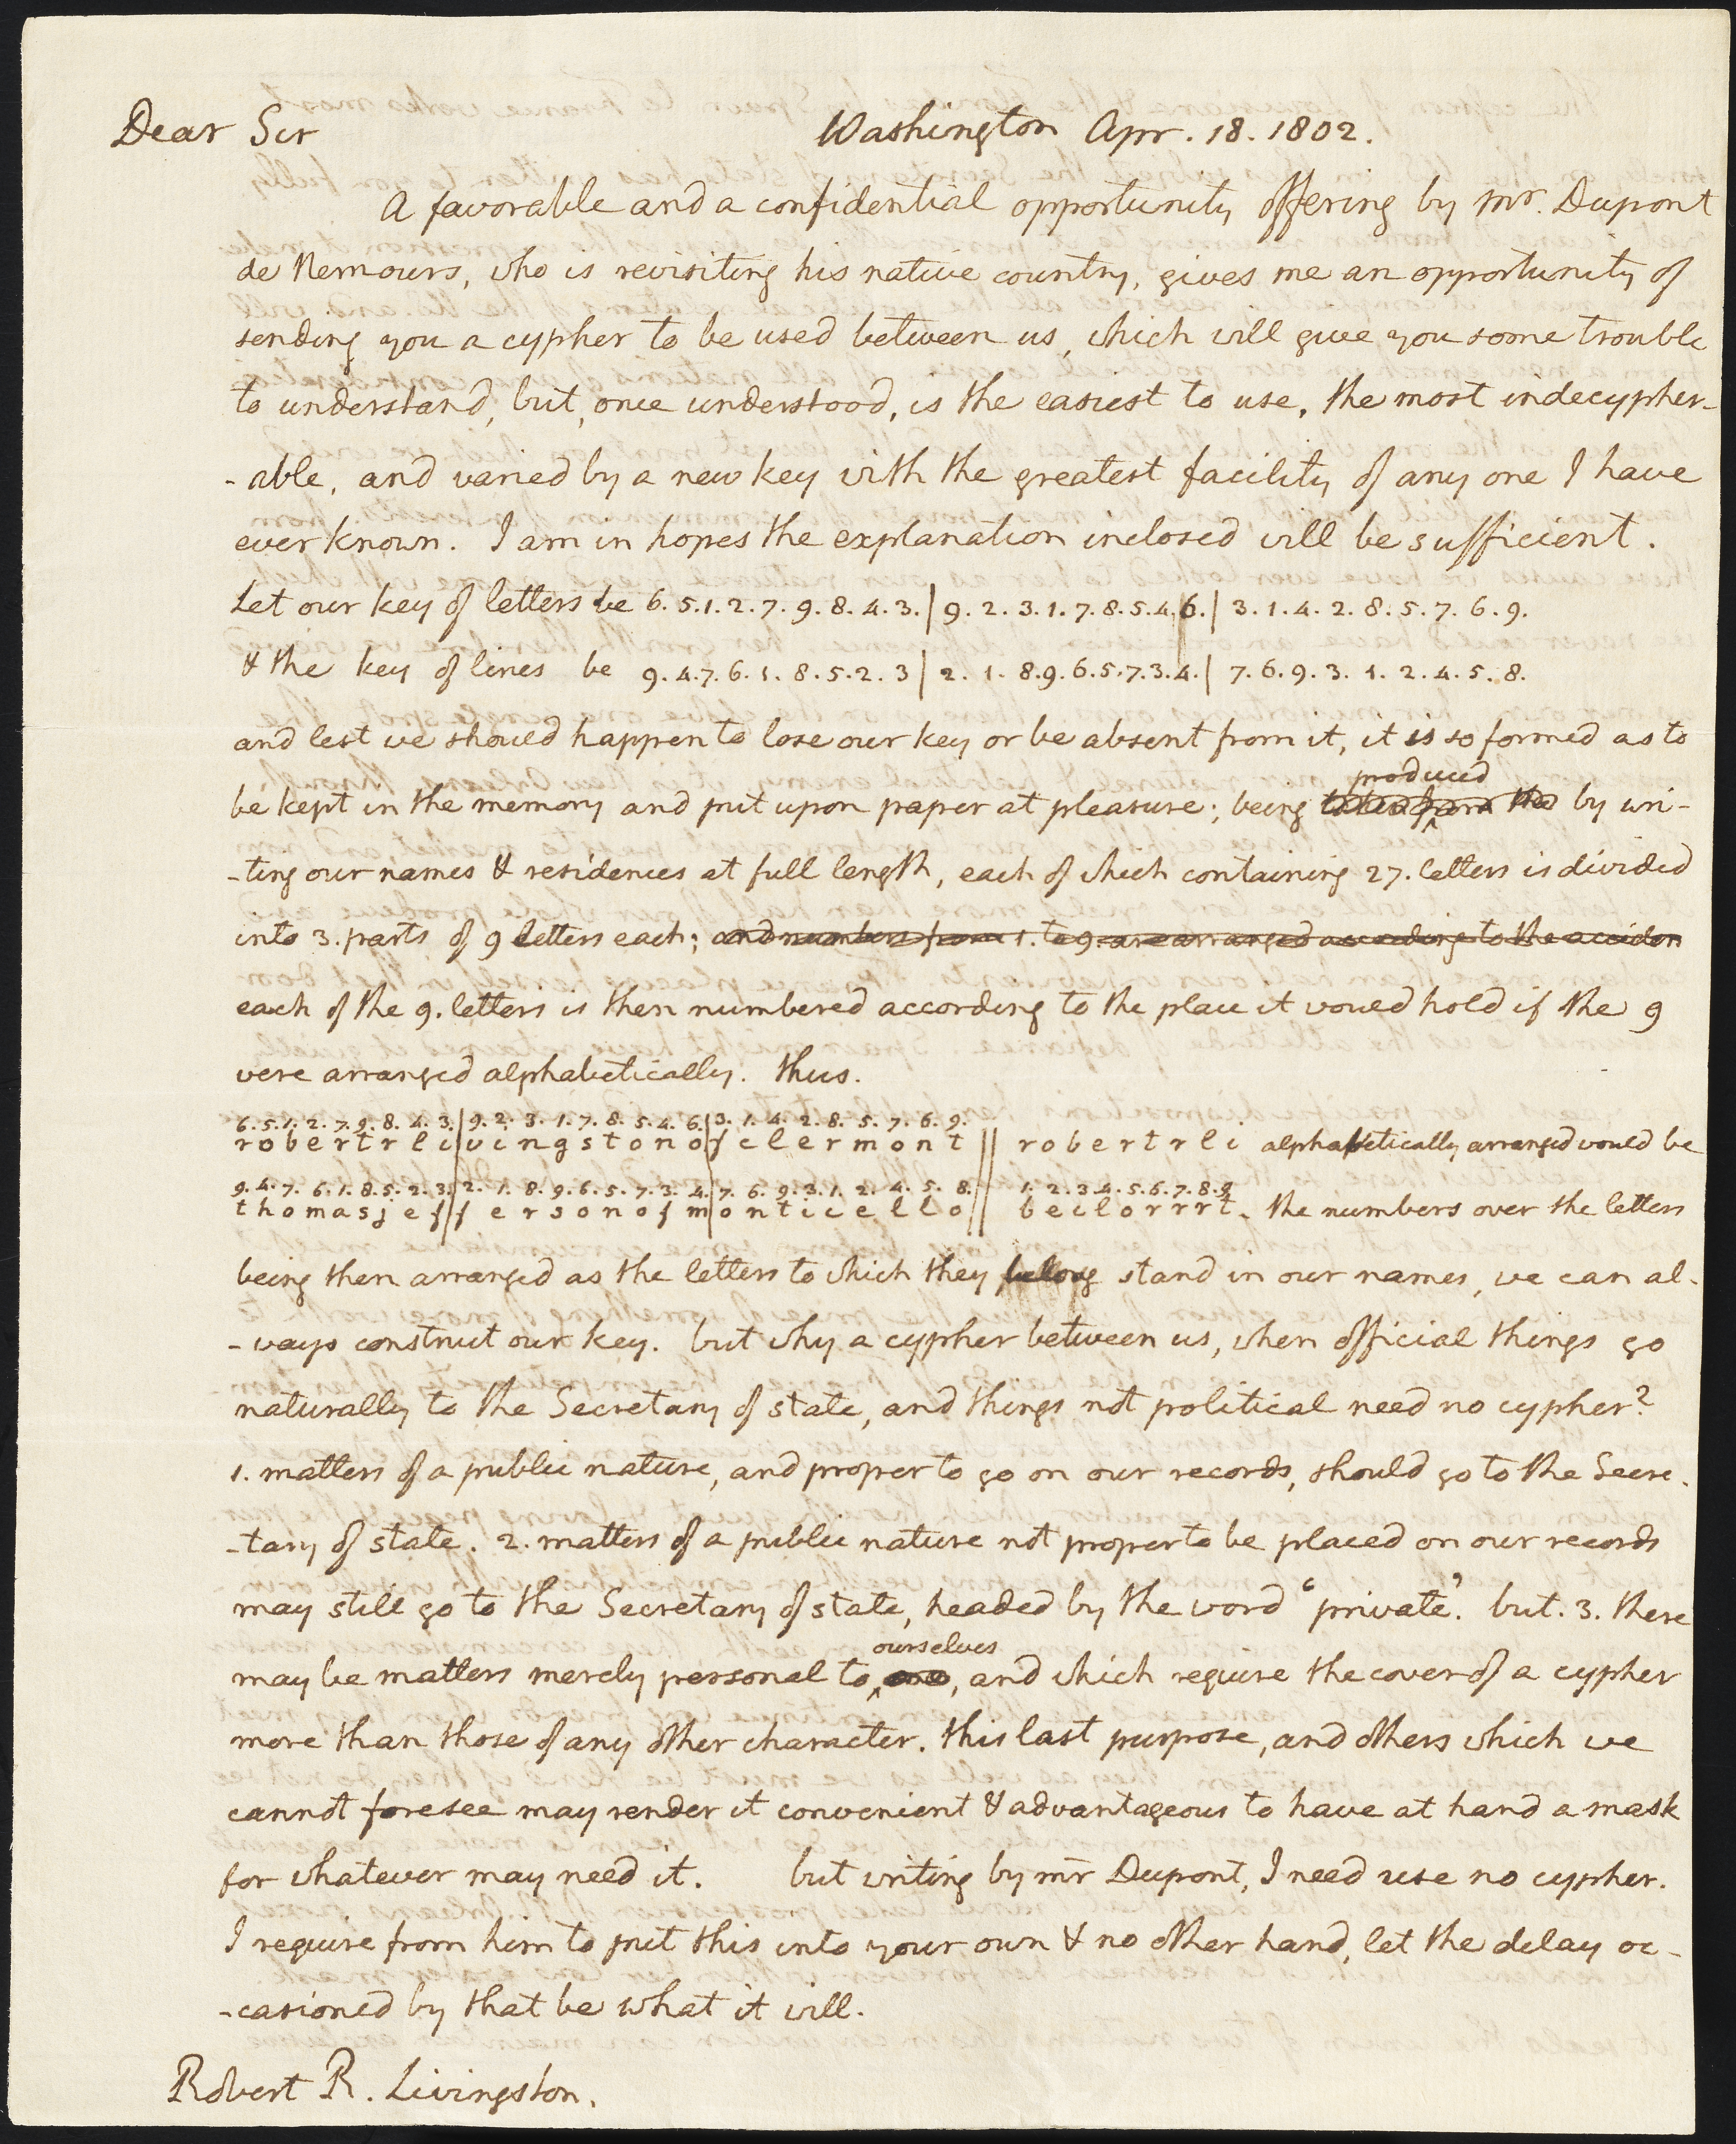 Dear Sir Washington Apr. 18. 1802.
A favorable and a confidential opportunity offering by mr. Dupont
de Nemours, who is revisiting his native country, gives me an opportunity of
sending you a cypher to be used between us, which will give you some trouble
to understand, but, once understood, is the easiest to use, the most indecypher-
-able, and varied by a new key with the greatest facility of any one I have
ever known. I am in hopes the explanation inclosed will be sufficient.
Let our key of letters be 6. 5. 1. 2. 7. 9. 8. 4. 3. | 9. 2. 3. 1. 7. 8. 5. 4. 6. | 3. 1. 4. 2. 8. 5. 7. 6. 9.
& the key of lines be 9. 4. 7. 6. 1. 8. 5. 2. 3 | 2. 1. 8. 9. 6. 5. 7. 3. 4. | 7. 6. 9. 3. 1. 2. 4. 5. 8.
and lest we should happen to lose our key or be absent from it, it is so formed as to
produced
be kept in the memory and put upon paper at pleasure; being taken from the by wri-
-ting our names & residences at full length, each of which containing 27. letters is divided
into 3. parts of 9 letters each; and numbers from 1. to 9. are arranged according to the acciden
each of the 9. letters is then numbered according to the place it would hold if the 9
were arranged alphabetically. thus.
6. 5. 1. 2. 7. 9. 8. 4. 3. | 9. 2. 3. 1. 7. 8. 5. 4. 6. | 3. 1. 4. 2. 8. 5. 7. 6. 9.
r o b e r t r l i | v i n g s t o n o | f c l e r m o n t || r o b e r t r l i alphabetically arranged would be
9. 4. 7. 6. 1. 8. 5. 2. 3. | 2. 1. 8. 9. 6. 5. 7. 3. 4. | 7. 6. 9. 3. 1. 2. 4. 5. 8. || 1. 2. 3. 4. 5. 6. 7. 8. 9
t h o m a s j e f | f e r s o n o f m | o n t i c e l l o || b e i l o r r r t. the numbers over the letters
being then arranged as the letters to which they belong stand in our names, we can al-
-ways construct our key. but why a cypher between us, when official things go
naturally to the Secretary of state, and things not political need no cypher?
1. matters of a public nature, and proper to go on our records, should go to the Secre-
-tary of state. 2. matters of a public nature not proper to be placed on our records
may still go to the Secretary of state, headed by the word 'private'. but. 3. there
ourselves
may be matters merely personal to , and which require the cover of a cypher
more than those of any other character. this last purpose, and others which we
cannot foresee may render it convenient & advantageous to have at hand a mask
for whatever may need it. but writing by mr Dupont, I need use no cypher.
I require from him to put this into your own & no other hand, let the delay oc-
-casioned by that be what it will.
Robert R. Livingston.